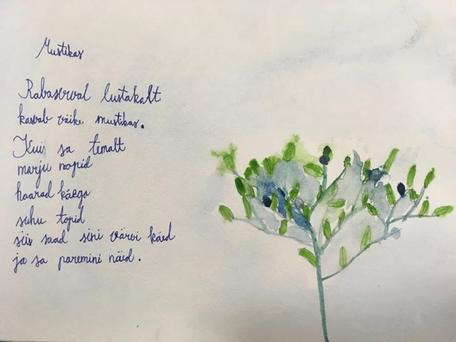 Mustikas
Rabaserval lustakalt
kasvab väike mustikas.
Kui sa temalt
marju nopid
haarad käega
suhu topid
siis saad sini värvi käed
ja sa paremini näed.